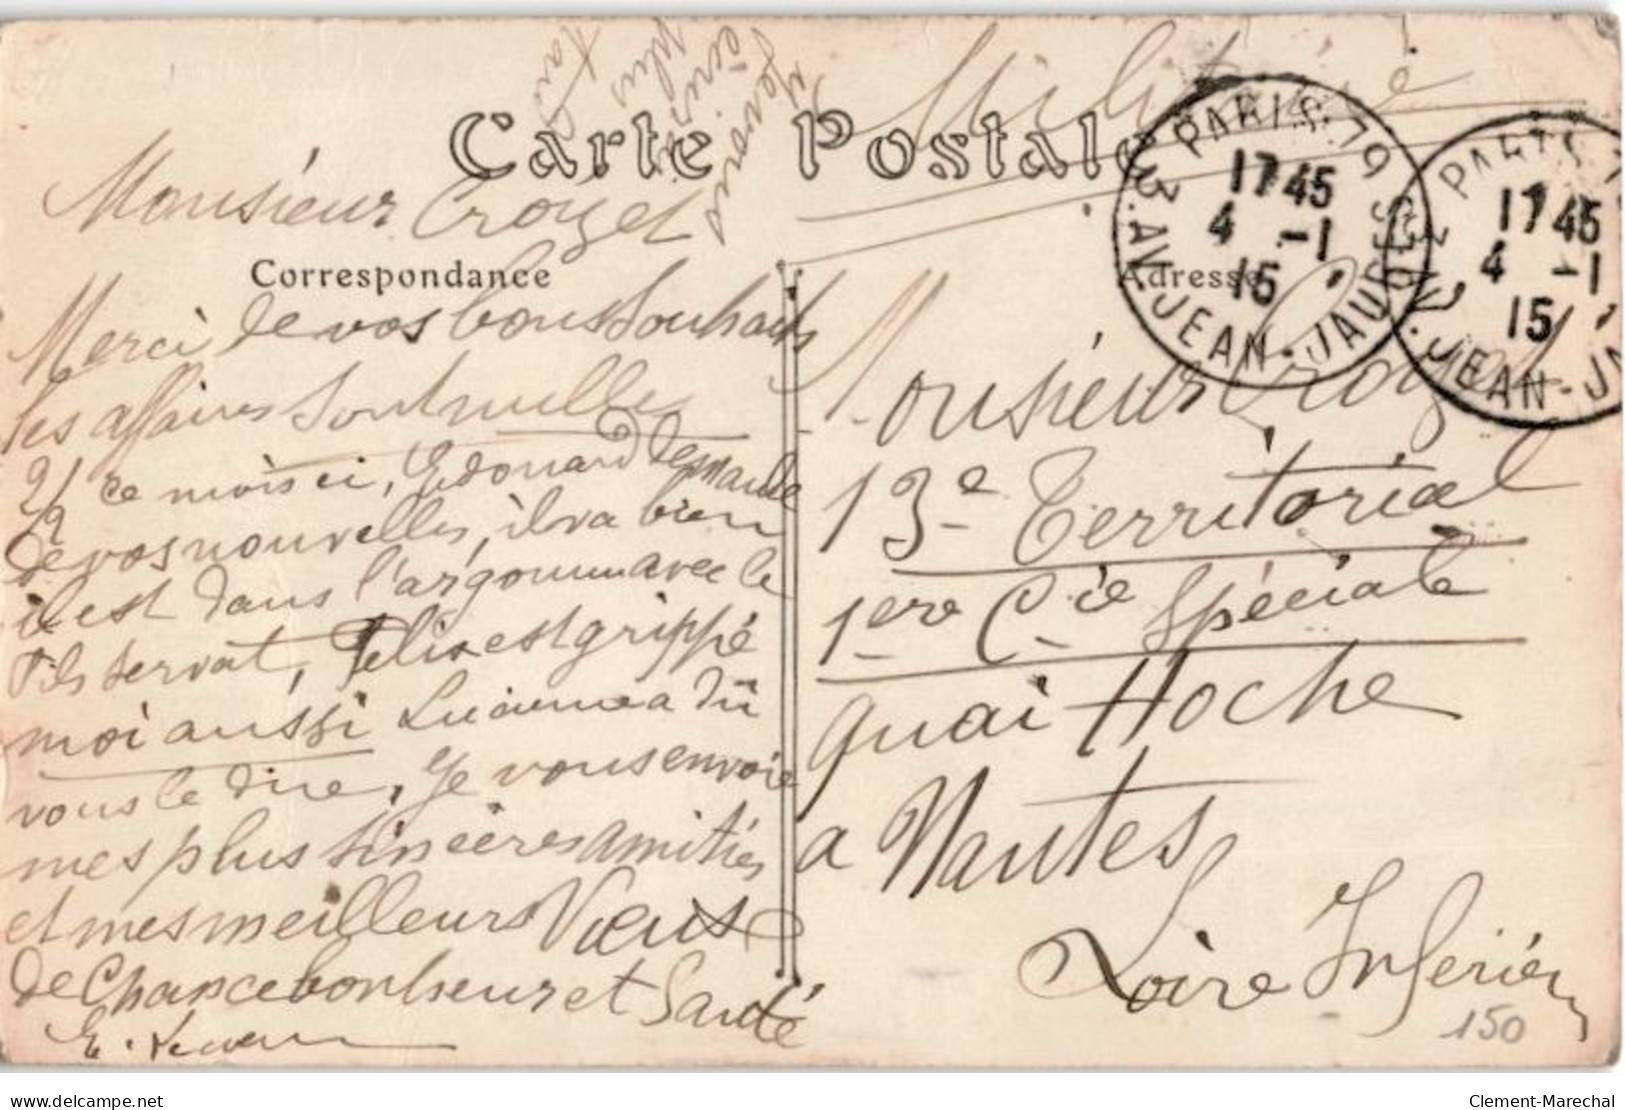 Militaire
Je vous
écrirai
plus
tard
Carte Postale
Monsieur Crozet
Correspondance
Adresse
PARIS 79
1745
4 -1
15
3. AV. JEAN-JAURÈS
PARIS
1745
4 -1
15
3 AV. JEAN-J
Merci de vos bons souhaits
les affaires sont nulles
ce mois ci, Edouard demande
de vos nouvelles, il va bien
il est dans l'argonne avec le
fils Servat, Félix est grippé
moi aussi Lucienne a dû
vous le dire, Je vous envoie
mes plus sincères amitiés
et mes meilleurs Vœux
de Chance bonheur et Santé
E.
Monsieur Crozet
13e Territorial
1ere Cie Spéciale
quai Hoche
a Nantes
Loire Inférieu
150
delcampe.net
Clement-Marechal